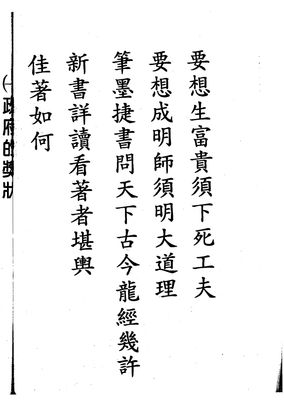 要想生富貴須下死工夫
要想成明師須明大道理
筆墨捷書問天下古今龍經幾許
新書詳讀看著者堪輿
佳著如何
(一)政府的獎狀